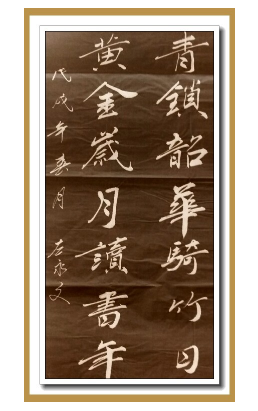 青鎖韶華騎竹日
黄金歲月讀書年
戊戌年春月
左承文